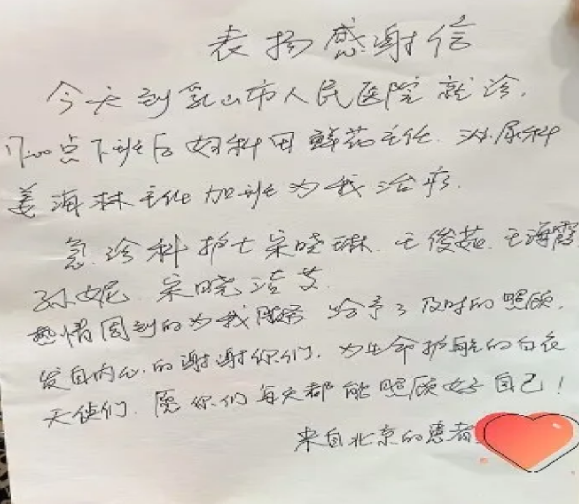 表扬感谢信
今天到乳山市人民医院就诊,
17:00点下班后妇科田鲜药主任.泌尿科
姜海林主任加班为我治疗.
急诊科护士宋晓琳.王俊茹.王海霞
孙妮.宋晓洁等
热情周到的为我服务 给予了及时的照顾.
发自内心的谢谢你们.为生命护航的白衣
天使们.愿你们每天都能照顾好自己!
来自北京的患者